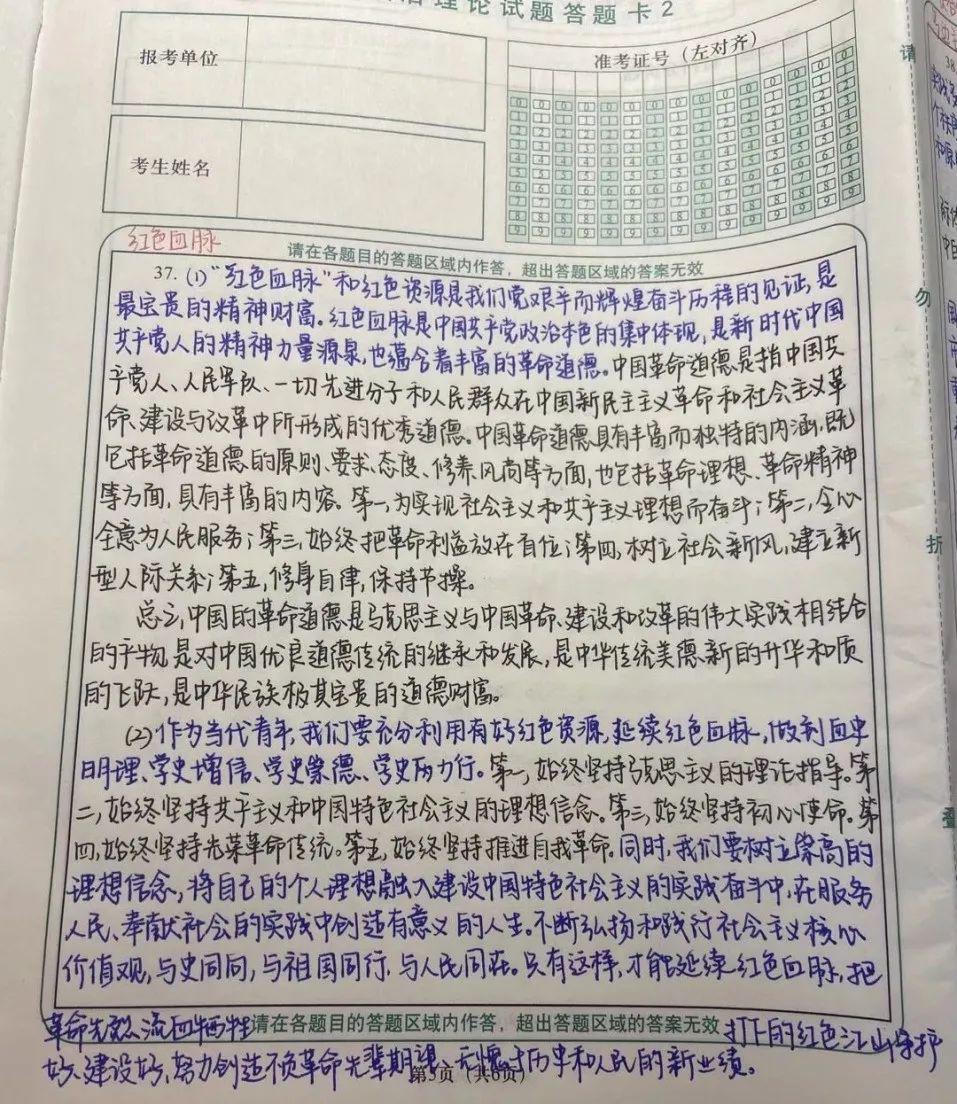 治理论试题答题卡2
报考单位
准考证号(左对齐)
考生姓名
请
勿
折
叠
红色血脉
请在各题目的答题区域内作答,超出答题区域的答案无效
37. (1)“红色血脉”和红色资源是我们党艰辛而辉煌奋斗历程的见证,是
最宝贵的精神财富。红色血脉是中国共产党政治本色的集中体现,是新时代中国
共产党人的精神力量源泉,也蕴含着丰富的革命道德。中国革命道德是指中国共
产党人、人民军队、一切先进分子和人民群众在中国新民主主义革命和社会主义革
命、建设与改革中所形成的优秀道德。中国革命道德具有丰富而独特的内涵,既
包括革命道德的原则、要求、态度、修养、风尚等方面,也包括革命理想、革命精神
等方面,具有丰富的内容。第一,为实现社会主义和共产主义理想而奋斗;第二,全心
全意为人民服务;第三,始终把革命利益放在首位;第四,树立社会新风,建立新
型人际关系;第五,修身自律,保持节操。
总之,中国的革命道德是马克思主义与中国革命、建设和改革的伟大实践相结合
的产物,是对中国优良道德传统的继承和发展,是中华传统美德新的升华和质
的飞跃,是中华民族极其宝贵的道德财富。
(2)作为当代青年,我们要充分利用有好红色资源,延续红色血脉,做到
明理、学史增信、学史崇德、学史力行。第一,始终坚持马克思主义的理论指导。第
二,始终坚持共产主义和中国特色社会主义的理想信念。第三,始终坚持初心使命。第
四,始终坚持光荣革命传统。第五,始终坚持推进自我革命。同时,我们要树立崇高的
理想信念,将自己的个人理想融入建设中国特色社会主义的实践奋斗中,在服务
人民、奉献社会的实践中创造有意义的人生。不断弘扬和践行社会主义核心
价值观,与史同向,与祖国同行,与人民同在。只有这样,才能延续红色血脉,把
革命先烈流血牺牲打下的红色江山保护
请在各题目的答题区域内作答,超出答题区域的答案无效
好、建设好,努力创造不负革命先辈期望、无愧于历史和人民的新业绩。
第5页(共6页)
38